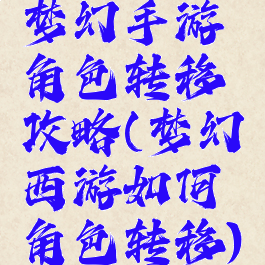 梦幻手游
角色转移
攻略(梦幻
西游如何
角色转移)